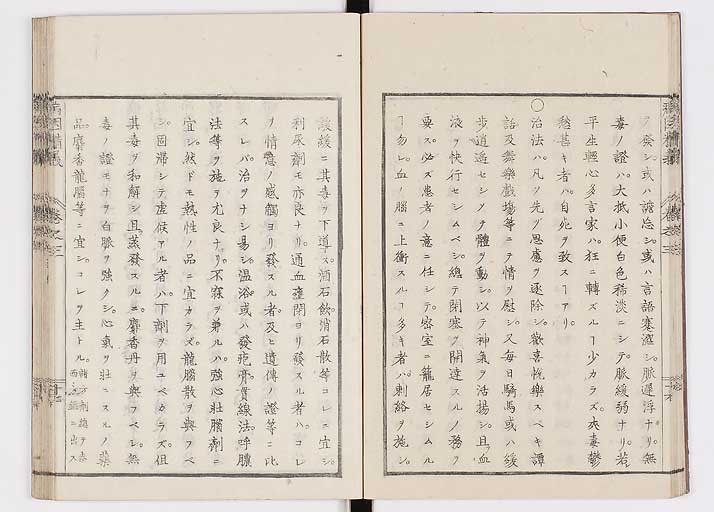 ヲ發シ。或ハ譫忘シ。或ハ言語蹇澀シ。脈遲浮ナリ。無
毒ノ證ハ。大抵小便白色稀淡ニシテ。脈緩弱ナリ。若
平生輕心多言家ハ。狂ニ轉ズルヿ少カラズ。夫毒鬱
愁甚キ者ハ。自死ヲ致スヿアリ。
○治法ハ。凡ソ先ヅ思慮ヲ逐除シ。歡喜悅樂スベキ譚
話及舞樂戲場等ニテ情ヲ慰シ。又每日騎馬或ハ緩
步逍遙セシメテ體ヲ動シ。以テ神氣ヲ活揚シ。且血
液ヲ快行セシムベシ。總テ閉塞ヲ開達スルノ務ヲ
要ス。必ズ患者ノ意ニ任シテ。密室ニ籠居セシムル
ヿ勿レ。血ノ腦ニ上衝スルヿ多キ者ハ。刺絡ヲ施シ。
緩ニ其毒ヲ下導ス。酒石飲。消石散等コレニ宜シ。
利尿劑モ亦良ナリ。通血壅閉ヨリ發スル者ハ。コレ
ヲ情意ノ感觸ヨリ發スル者及ヒ遺傳ノ證等ニ比
スレバ治ヲナシ易シ。溫浴。或ハ發疱膏。貫線法。呼膿
法等ヲ施ヲ尤良ナリ。不寐ヲ兼ルハ。强心壯腦劑ニ
宜シ。然ドモ熱性ノ品ニ宜カラズ。龍腦散ヲ與フベ
シ。固滯シテ虛候アル者ハ。下劑ヲ用ユベカラズ。但
其毒ヲ和解シ且蒸發スルニ。麝香丹ヲ與フベシ。無
毒ノ證モナヲ白脈ヲ强クシ。心氣ヲ壯ニスルノ藥
品。麝香龍腦等ニ宜シ。コレヲ主トル。諸方劑